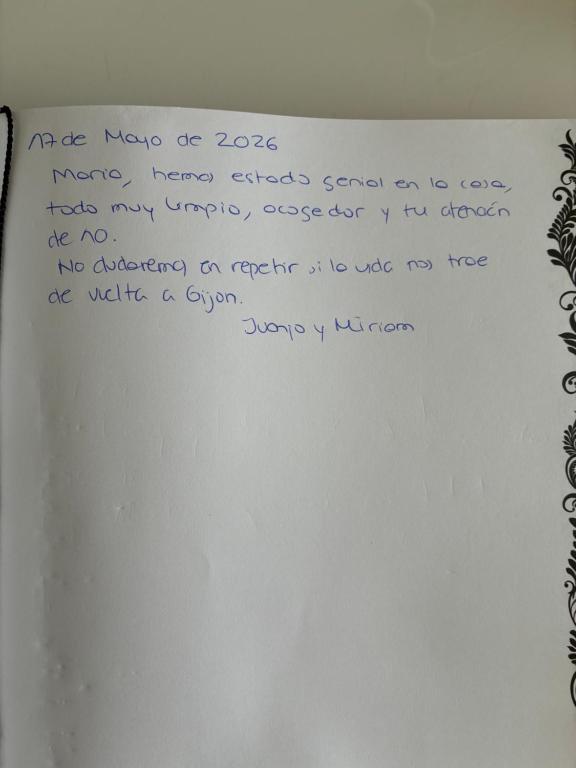 17 de Mayo de 2026
Maria, hemos estado genial en la casa,
todo muy limpio, acogedor y tu atención
de 10.
No dudaremos en repetir si la vida nos trae
de vuelta a Gijon.
Juanjo y Miriam